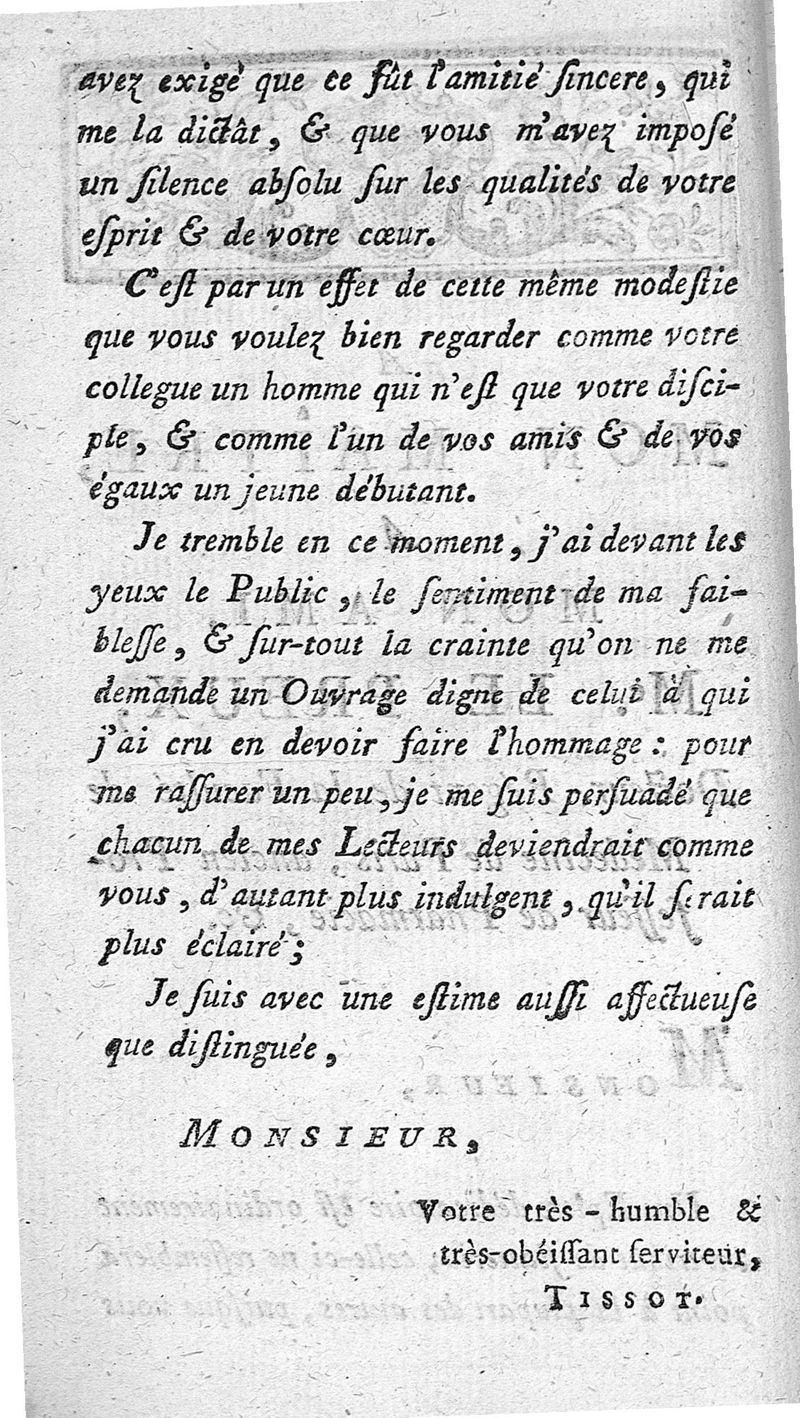 avez exigé que ce fût l'amitié ſincere, qui
me la dictât, & que vous m'avez impoſé
un ſilence abſolu ſur les qualités de votre
eſprit & de votre cœur.
C'eſt par un effet de cette même modeſtie
que vous voulez bien regarder comme votre
collegue un homme qui n'eſt que votre diſci-
ple, & comme l'un de vos amis & de vos
égaux un jeune débutant.
Je tremble en ce moment, j'ai devant les
yeux le Public, le ſentiment de ma fai-
bleſſe, & ſur-tout la crainte qu'on ne me
demande un Ouvrage digne de celui à qui
j'ai cru en devoir faire l'hommage : pour
me raſſurer un peu, je me ſuis perſuadé que
chacun de mes Lecteurs deviendrait comme
vous, d'autant plus indulgent, qu'il ſerait
plus éclairé ;
Je ſuis avec une eſtime auſſi affectueuſe
que diſtinguée,
MONSIEUR,
Votre très-humble &
très-obéiſſant ſerviteur,
TISSOT.